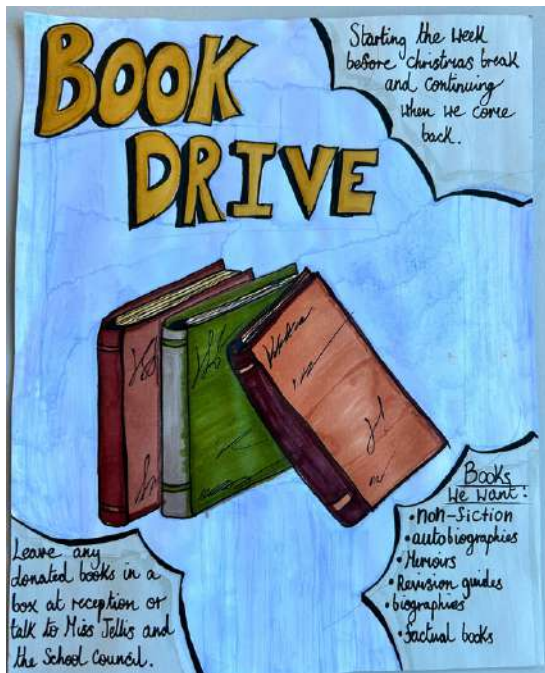 BOOK
DRIVE
Starting the week
before christmas break
and continuing
when we come
back.
Books
we want:
• non-fiction
• autobiographies
• Memoirs
• Revision guides
• biographies
• factual books
Leave any
donated books in a
box at reception or
talk to Miss Jellis and
the School Council.